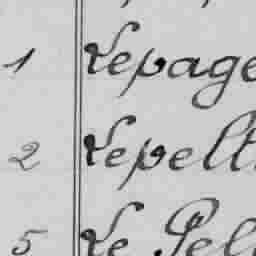 1 Lepage
2 Lepelt
5 Le Pel